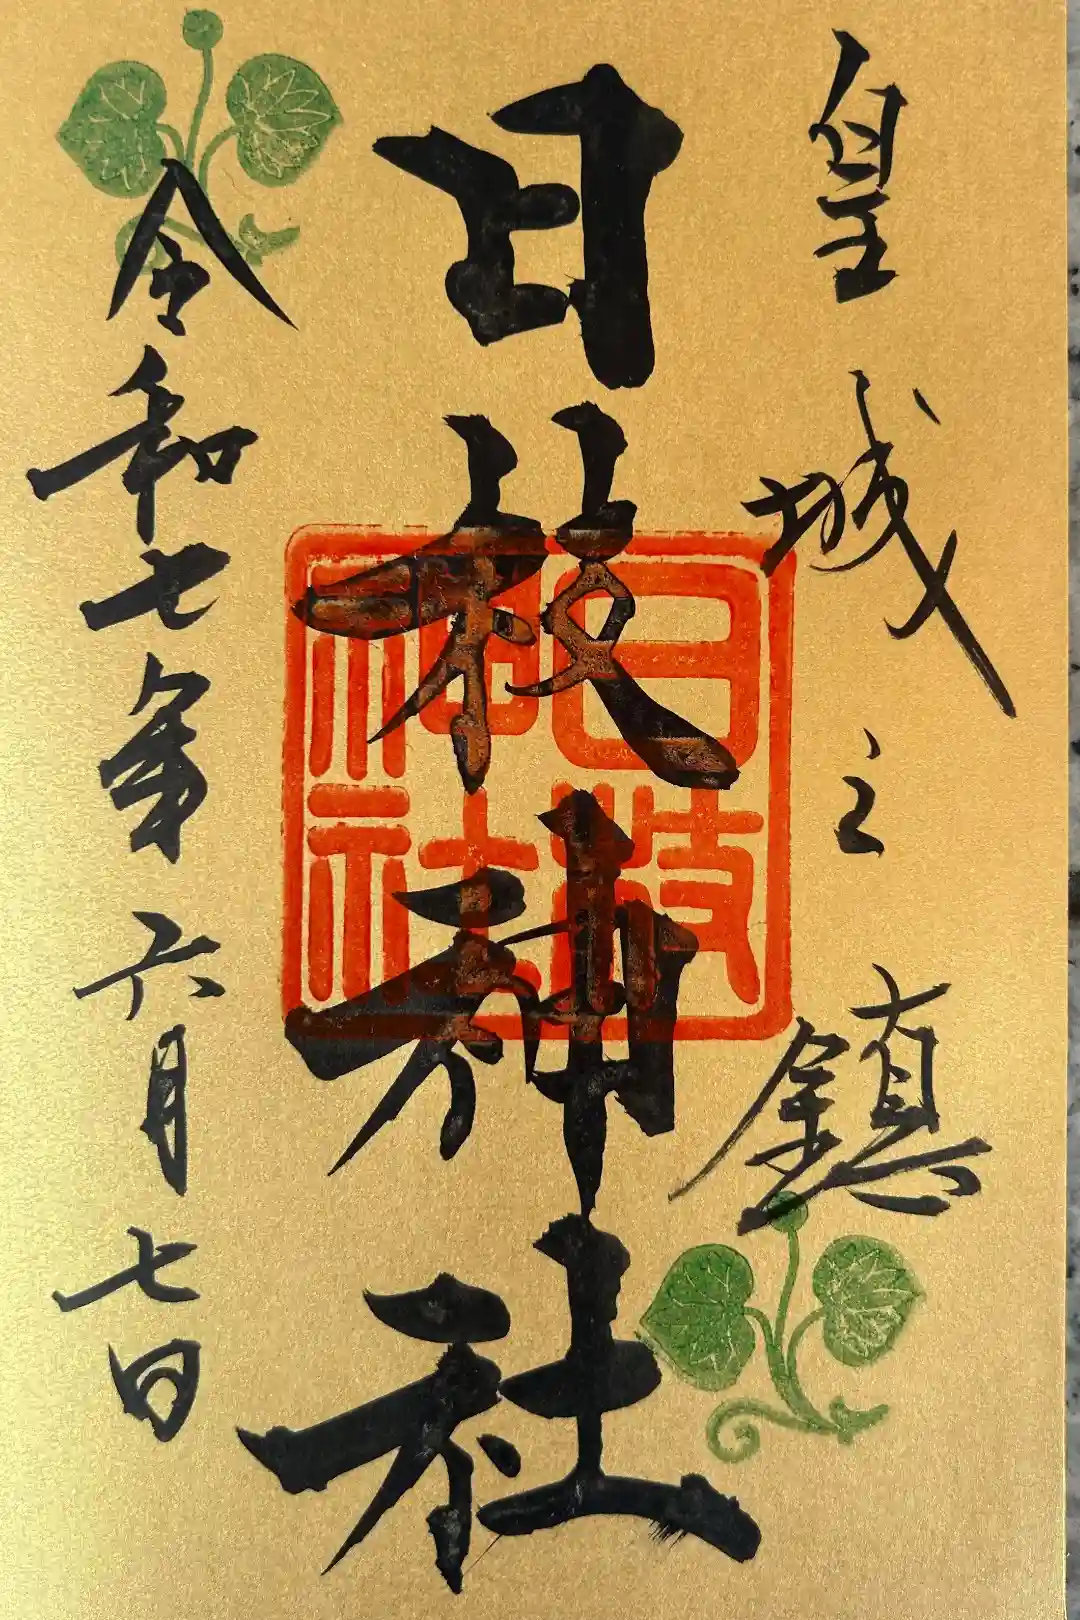 皇城之鎮
日枝神社
日枝
神社
令和七年六月七日